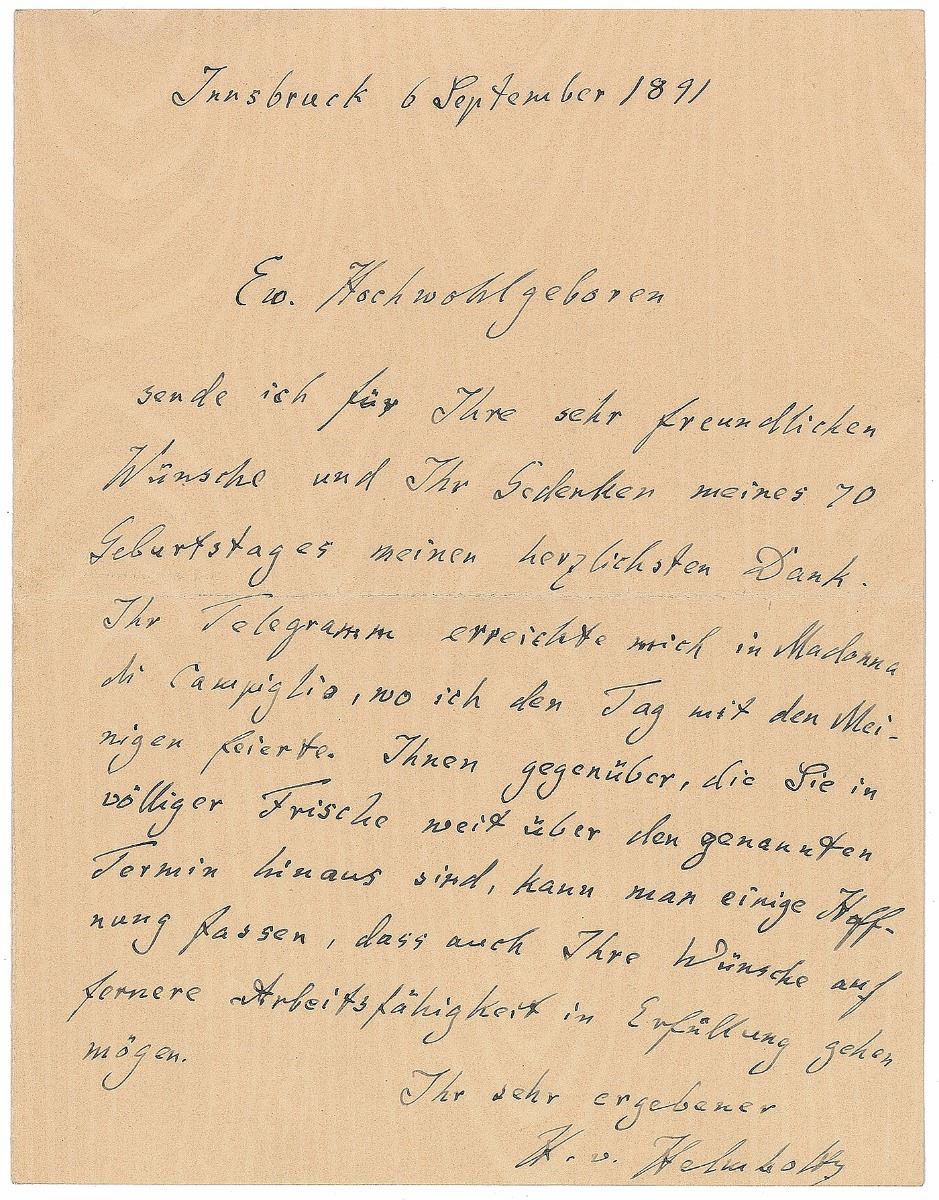 Innsbruck 6 September 1891
Ew. Hochwohlgeboren
sende ich für Ihre sehr freundlichen
Wünsche und Ihr Gedenken meines 70
Geburtstages meinen herzlichsten Dank.
Ihr Telegramm erreichte mich in Madonna
di Campiglio, wo ich den Tag mit den Mei-
nigen feierte. Ihnen gegenüber, die Sie in
völliger Frische weit über den genannten
Termin hinaus sind, kann man einige Hoff-
nung fassen, dass auch Ihre Wünsche auf
fernere Arbeitsfähigkeit in Erfüllung gehen
mögen.
Ihr sehr ergebener
H. v. Helmholtz